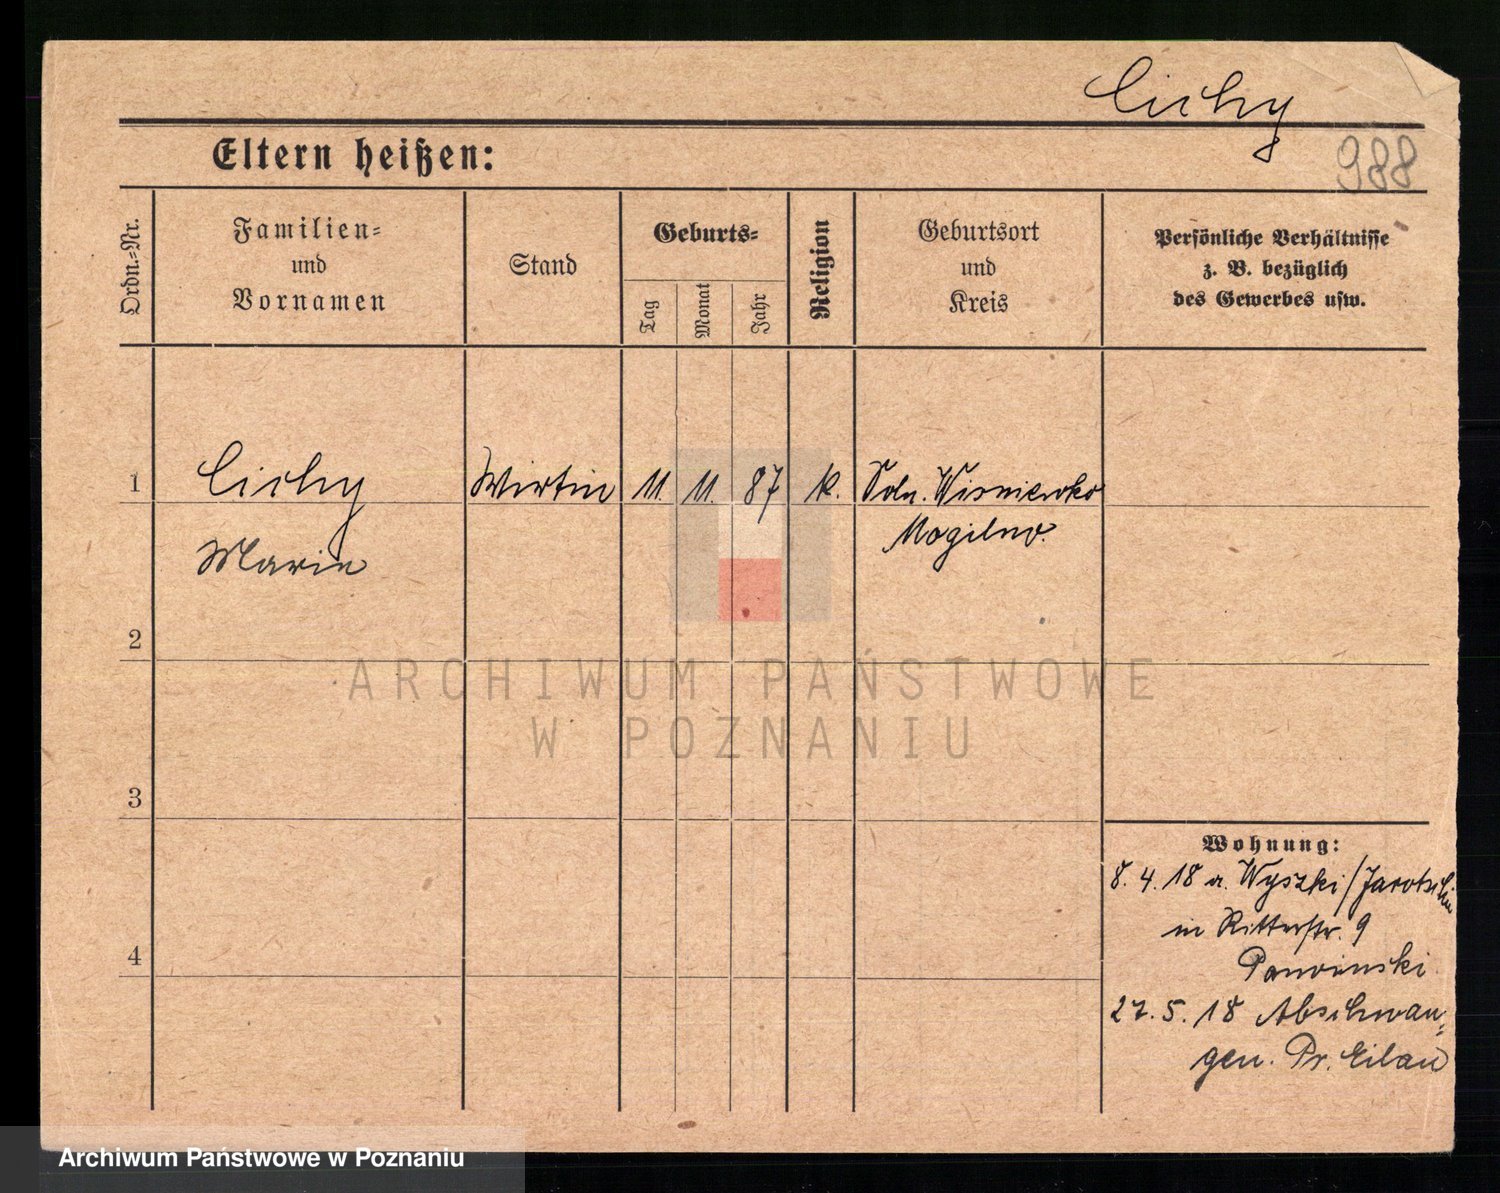 Cichy
Eltern heißen:
988
Ordn.-Nr.
Familien-
und
Vornamen
Stand
Geburts-
Tag
Monat
Jahr
Religion
Geburtsort
und
Kreis
Persönliche Verhältnisse
z. B. bezüglich
des Gewerbes usw.
1
Cichy
Wirtin
11.
11.
87
k.
Wisniewko
Mogilno.
Marie
2
ARCHIWUM PAŃSTWOWE
W POZNANIU
3
Wohnung:
8.4.18 a. Wyszki/Jarotschin
in Ritterstr. 9
4
27.5.18 Abschwan-
gen. Pr. Eilau
Archiwum Państwowe w Poznaniu